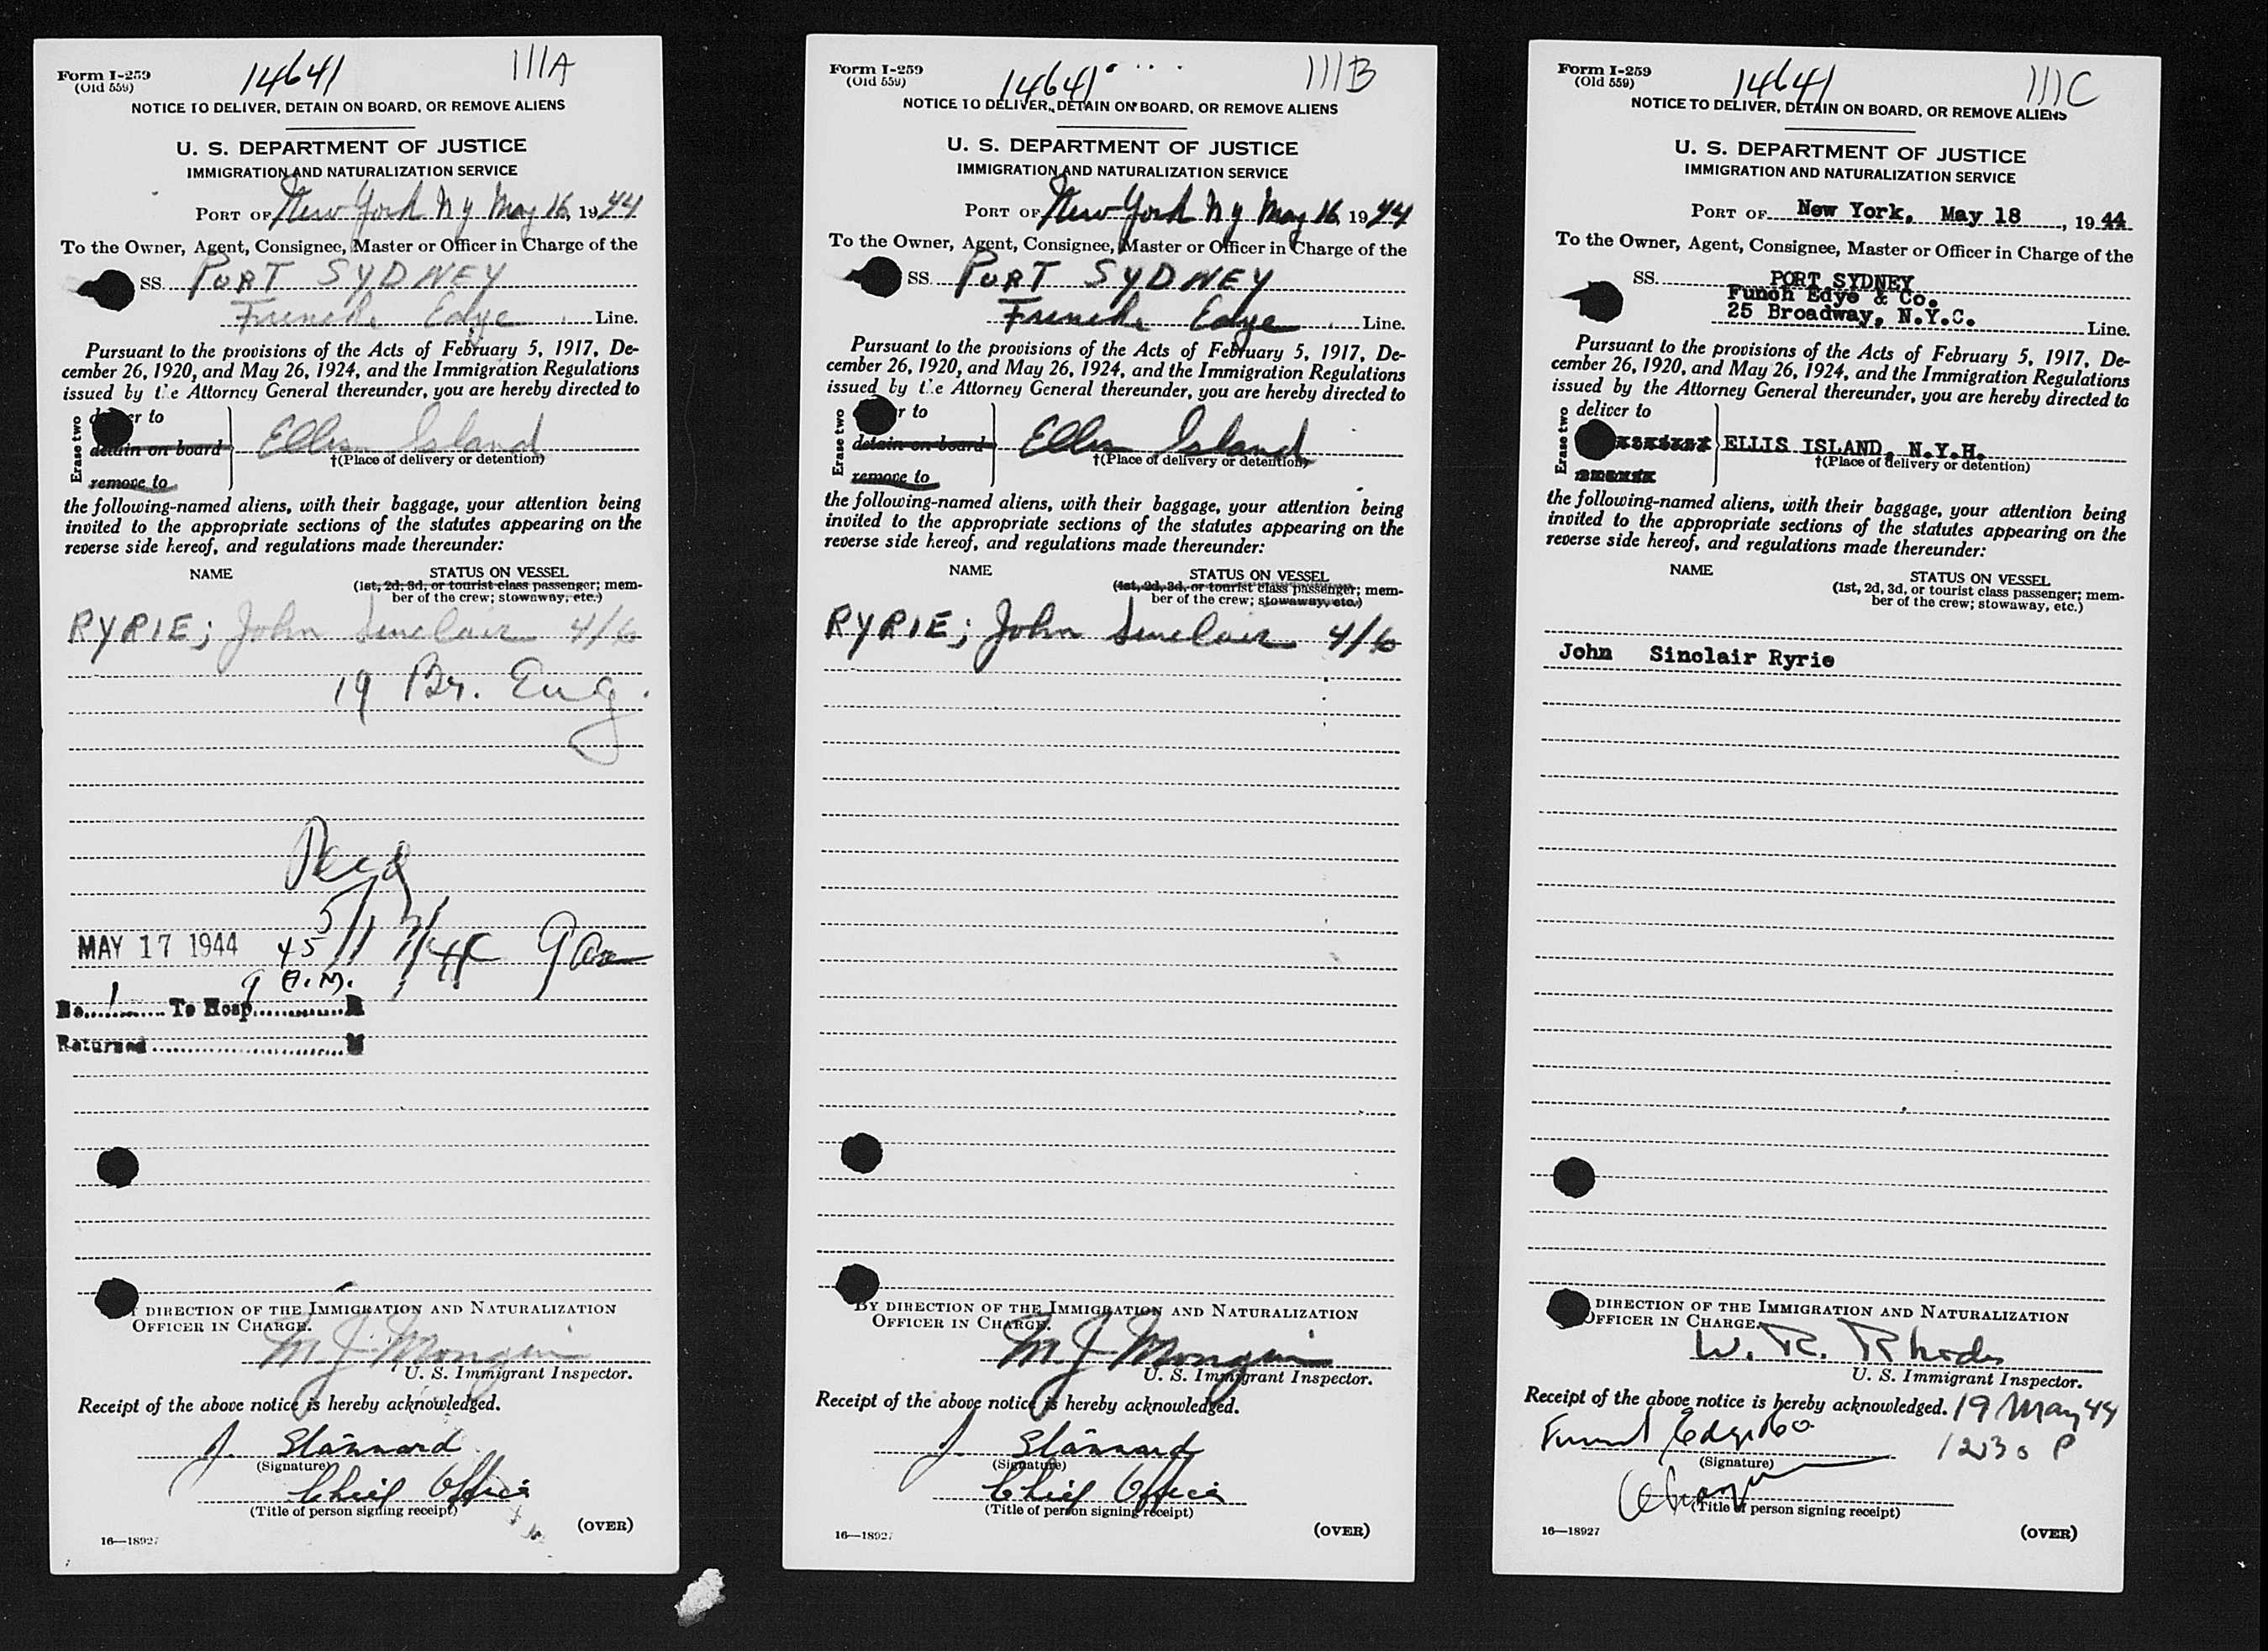 Form I-259
(Old 559)
14641
111A
NOTICE TO DELIVER, DETAIN ON BOARD, OR REMOVE ALIENS
U. S. DEPARTMENT OF JUSTICE
IMMIGRATION AND NATURALIZATION SERVICE
PORT OF New York N y May 16, 1944
To the Owner, Agent, Consignee, Master or Officer in Charge of the
SS. PORT SYDNEY
French Edye Line.
Pursuant to the provisions of the Acts of February 5, 1917, De-
cember 26, 1920, and May 26, 1924, and the Immigration Regulations
issued by the Attorney General thereunder, you are hereby directed to
Erase two
deliver to
detain on board
remove to
Ellis Island
†(Place of delivery or detention)
the following-named aliens, with their baggage, your attention being
invited to the appropriate sections of the statutes appearing on the
reverse side hereof, and regulations made thereunder:
NAME
STATUS ON VESSEL
(1st, 2d, 3d, or tourist class passenger; mem-
ber of the crew; stowaway, etc.)
RYRIE; John Sinclair 4/6
19 Br. Eng.
Recd
5/17/44 9 am
MAY 17 1944 45
9 A.M.
No. 1 To Hosp. M
Returned M
BY DIRECTION OF THE IMMIGRATION AND NATURALIZATION
OFFICER IN CHARGE.
M J Mongin
U. S. Immigrant Inspector.
Receipt of the above notice is hereby acknowledged.
J. Stannard
(Signature)
Chief Office
(Title of person signing receipt)
16—18927
(OVER)
Form I-259
(Old 559)
14641
111B
NOTICE TO DELIVER, DETAIN ON BOARD, OR REMOVE ALIENS
U. S. DEPARTMENT OF JUSTICE
IMMIGRATION AND NATURALIZATION SERVICE
PORT OF New York N y May 16, 1944
To the Owner, Agent, Consignee, Master or Officer in Charge of the
SS. PORT SYDNEY
French Edye Line.
Pursuant to the provisions of the Acts of February 5, 1917, De-
cember 26, 1920, and May 26, 1924, and the Immigration Regulations
issued by the Attorney General thereunder, you are hereby directed to
Erase two
r to
detain on board
remove to
Ellis Island
†(Place of delivery or detention)
the following-named aliens, with their baggage, your attention being
invited to the appropriate sections of the statutes appearing on the
reverse side hereof, and regulations made thereunder:
NAME
STATUS ON VESSEL
(1st, 2d, 3d, or tourist class passenger; mem-
ber of the crew; stowaway, etc.)
RYRIE; John Sinclair 4/6
BY DIRECTION OF THE IMMIGRATION AND NATURALIZATION
OFFICER IN CHARGE.
M J Mongin
U. S. Immigrant Inspector.
Receipt of the above notice is hereby acknowledged.
J. Stannard
(Signature)
Chief Office
(Title of person signing receipt)
16—18927
(OVER)
Form I-259
(Old 559)
14641
111C
NOTICE TO DELIVER, DETAIN ON BOARD, OR REMOVE ALIENS
U. S. DEPARTMENT OF JUSTICE
IMMIGRATION AND NATURALIZATION SERVICE
PORT OF New York, May 18, 1944
To the Owner, Agent, Consignee, Master or Officer in Charge of the
SS. PORT SYDNEY
Funch Edye & Co.
25 Broadway, N.Y.C. Line.
Pursuant to the provisions of the Acts of February 5, 1917, De-
cember 26, 1920, and May 26, 1924, and the Immigration Regulations
issued by the Attorney General thereunder, you are hereby directed to
Erase two
deliver to
ELLIS ISLAND, N.Y.H.
†(Place of delivery or detention)
the following-named aliens, with their baggage, your attention being
invited to the appropriate sections of the statutes appearing on the
reverse side hereof, and regulations made thereunder:
NAME
STATUS ON VESSEL
(1st, 2d, 3d, or tourist class passenger; mem-
ber of the crew; stowaway, etc.)
John Sinclair Ryrie
DIRECTION OF THE IMMIGRATION AND NATURALIZATION
OFFICER IN CHARGE.
W. R. Rhodes
U. S. Immigrant Inspector.
Receipt of the above notice is hereby acknowledged. 19 May 44
Funch Edye & Co 1230 P
(Signature)
(Title of person signing receipt)
16—18927
(OVER)